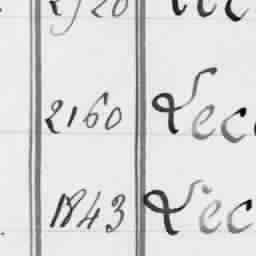 2160 Lec
1843 Lec